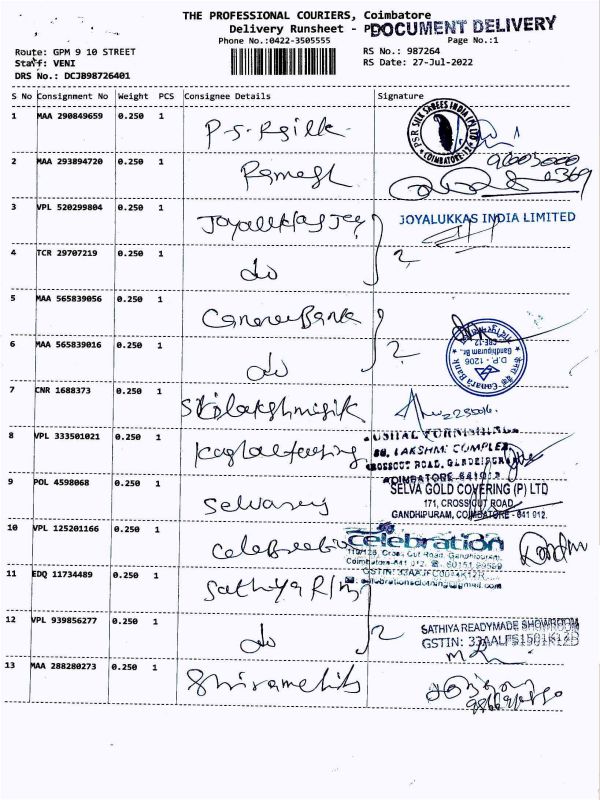 THE PROFESSIONAL COURIERS, Coimbatore
Delivery Runsheet - P DOCUMENT DELIVERY
Phone No.:0422-3505555 Page No.:1
Route: GPM 9 10 STREET RS No.: 987264
Staff: VENI RS Date: 27-Jul-2022
DRS No.: DCJB98726401
S No Consignment No Weight PCS Consignee Details Signature
1 MAA 290849659 0.250 1 P.S.R silk
PSR SILK SAREES INDIA (P) LTD
COIMBATORE-12
2 MAA 293894720 0.250 1 Ramesh
3 VPL 520299804 0.250 1 Joyalukkas Jew
JOYALUKKAS INDIA LIMITED
4 TCR 29707219 0.250 1 do 2
5 MAA 565839056 0.250 1 Canara Bank
6 MAA 565839016 0.250 1 do 2
Canara Bank
D.P. - 1206
Gandhipuram Br.,
CBE-12
7 CNR 1688373 0.250 1
8 VPL 333501021 0.250 1
USHAL FURNISHING
LAKSHMI COMPLEX,
CROSSCUT ROAD,
COIMBATORE
9 POL 4598068 0.250 1
SELVA GOLD COVERING (P) LTD
171, CROSSCUT ROAD,
GANDHIPURAM, COIMBATORE - 641 012.
10 VPL 125201166 0.250 1
celebration
Cross Cut Road, Gandhipuram,
Coimbatore-641 012.
11 EDQ 11734489 0.250 1 Sathiya R/m
12 VPL 939856277 0.250 1 do 2
SATHIYA READYMADE SHOWROOM
GSTIN: 33AALFS1501K1ZB
13 MAA 288280273 0.250 1